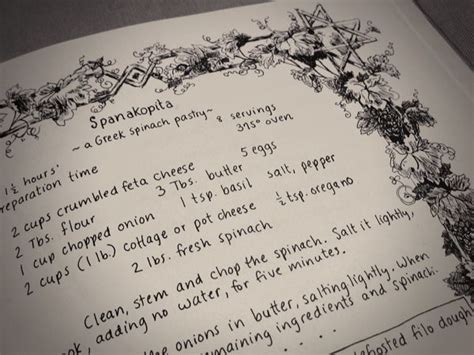 Spanakopita
~a Greek spinach pastry~
8 servings
375° oven
1½ hours'
preparation time
2 cups crumbled feta cheese
5 eggs
2 Tbs. flour
3 Tbs. butter
salt, pepper
1 cup chopped onion
1 tsp. basil
½ tsp. oregano
2 cups (1 lb.) cottage or pot cheese
2 lbs. fresh spinach
Clean, stem and chop the spinach. Salt it lightly,
adding no water, for five minutes.
onions in butter, salting lightly. When
remaining ingredients and spinach.
filo dough